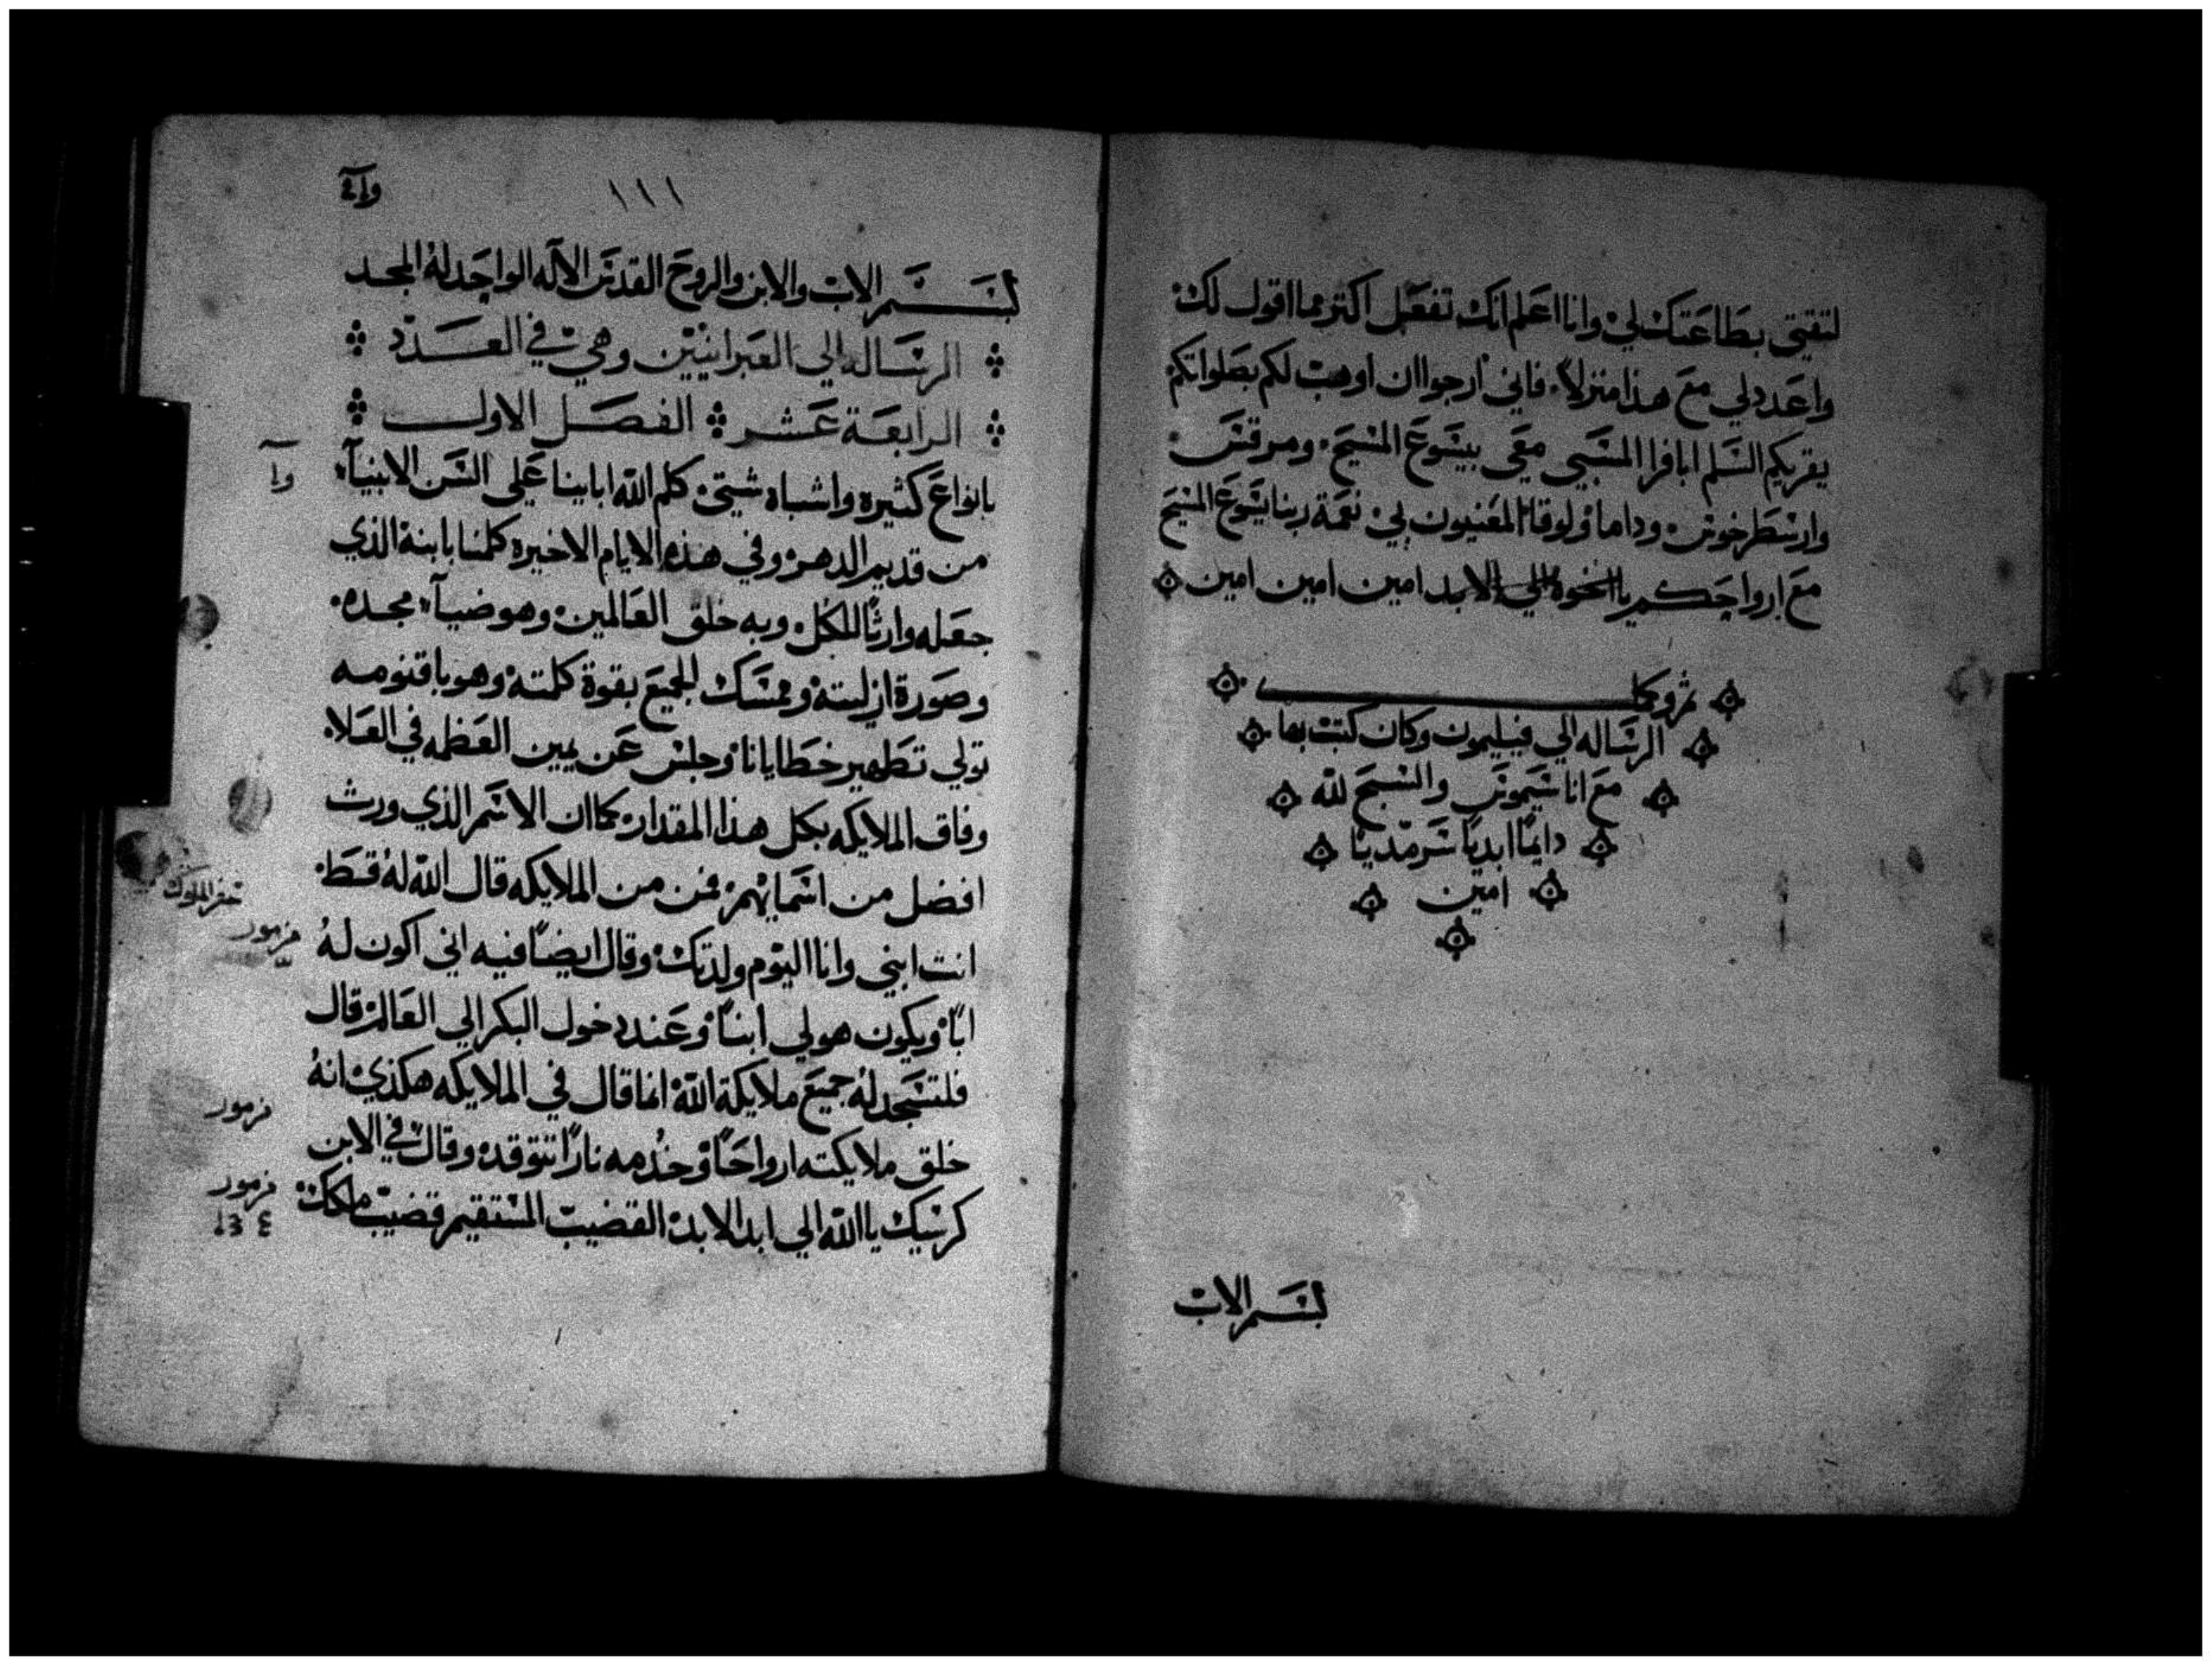 لتقيتي بطاعتك لي وانا اعلم انك تفعل اكتر مما اقول لك
واعدد لي مع هذا منزلاً فاني ارجوا ان اوهب لكم بصلواتكم
يقريكم السلم ابافرا المسبي معي بيسوع المسيح ومرقس
وارسطرخوس وداماو لوقا المعنيون بي نعمة ربنا يسوع المسيح
مع ارواحكم يا اخوه الي الابد امين امين امين
تم وكما
الرساله الي فيليمون وكان كتب بها
مع اناسيموس والسبح لله
دايمًا ابديًا سرمديًا
امين
بسم الاب
١١١
بسم الاب والابن والروح القدس الآله الواحد له المجد
الرساله الي العبرانيين وهي في العدد
الرابعة عشر الفصل الاول
بانواع كثيره واشباه شيتي كلم الله اباينا علي السن الانبيآء
من قديم الدهر وفي هذه الايام الاخيره كلمنا بابنه الذي
جعله وارثًا للكل وبه خلق العالمين وهو ضيآء مجده
وصورة ازليته وممسك الجميع بقوة كلمته وهو باقنومه
تولي تطهير خطايانا وجلس عن يمين العظمه في العلا
وفاق الملايكه بكل هذا المقدار كما ان الاسم الذي ورث
افضل من اسمايهم فمن من الملايكه قال الله له قط
انت ابني وانا اليوم ولدتك وقال ايضًا فيه اني اكون له
ابًا ويكون هو لي ابنًا وعند دخول البكر الي العالم قال
فلتسجد له جميع ملايكة الله انما قال في الملايكه هكذي انه
خلق ملايكته ارواحًا وخدمه نارًا تتوقد وقال في الابن
كرسيك يا الله الي ابد الابد القضيب المستقيم قضيب ملكك
سفر الملوك
مزمور
مزمور
مزمور